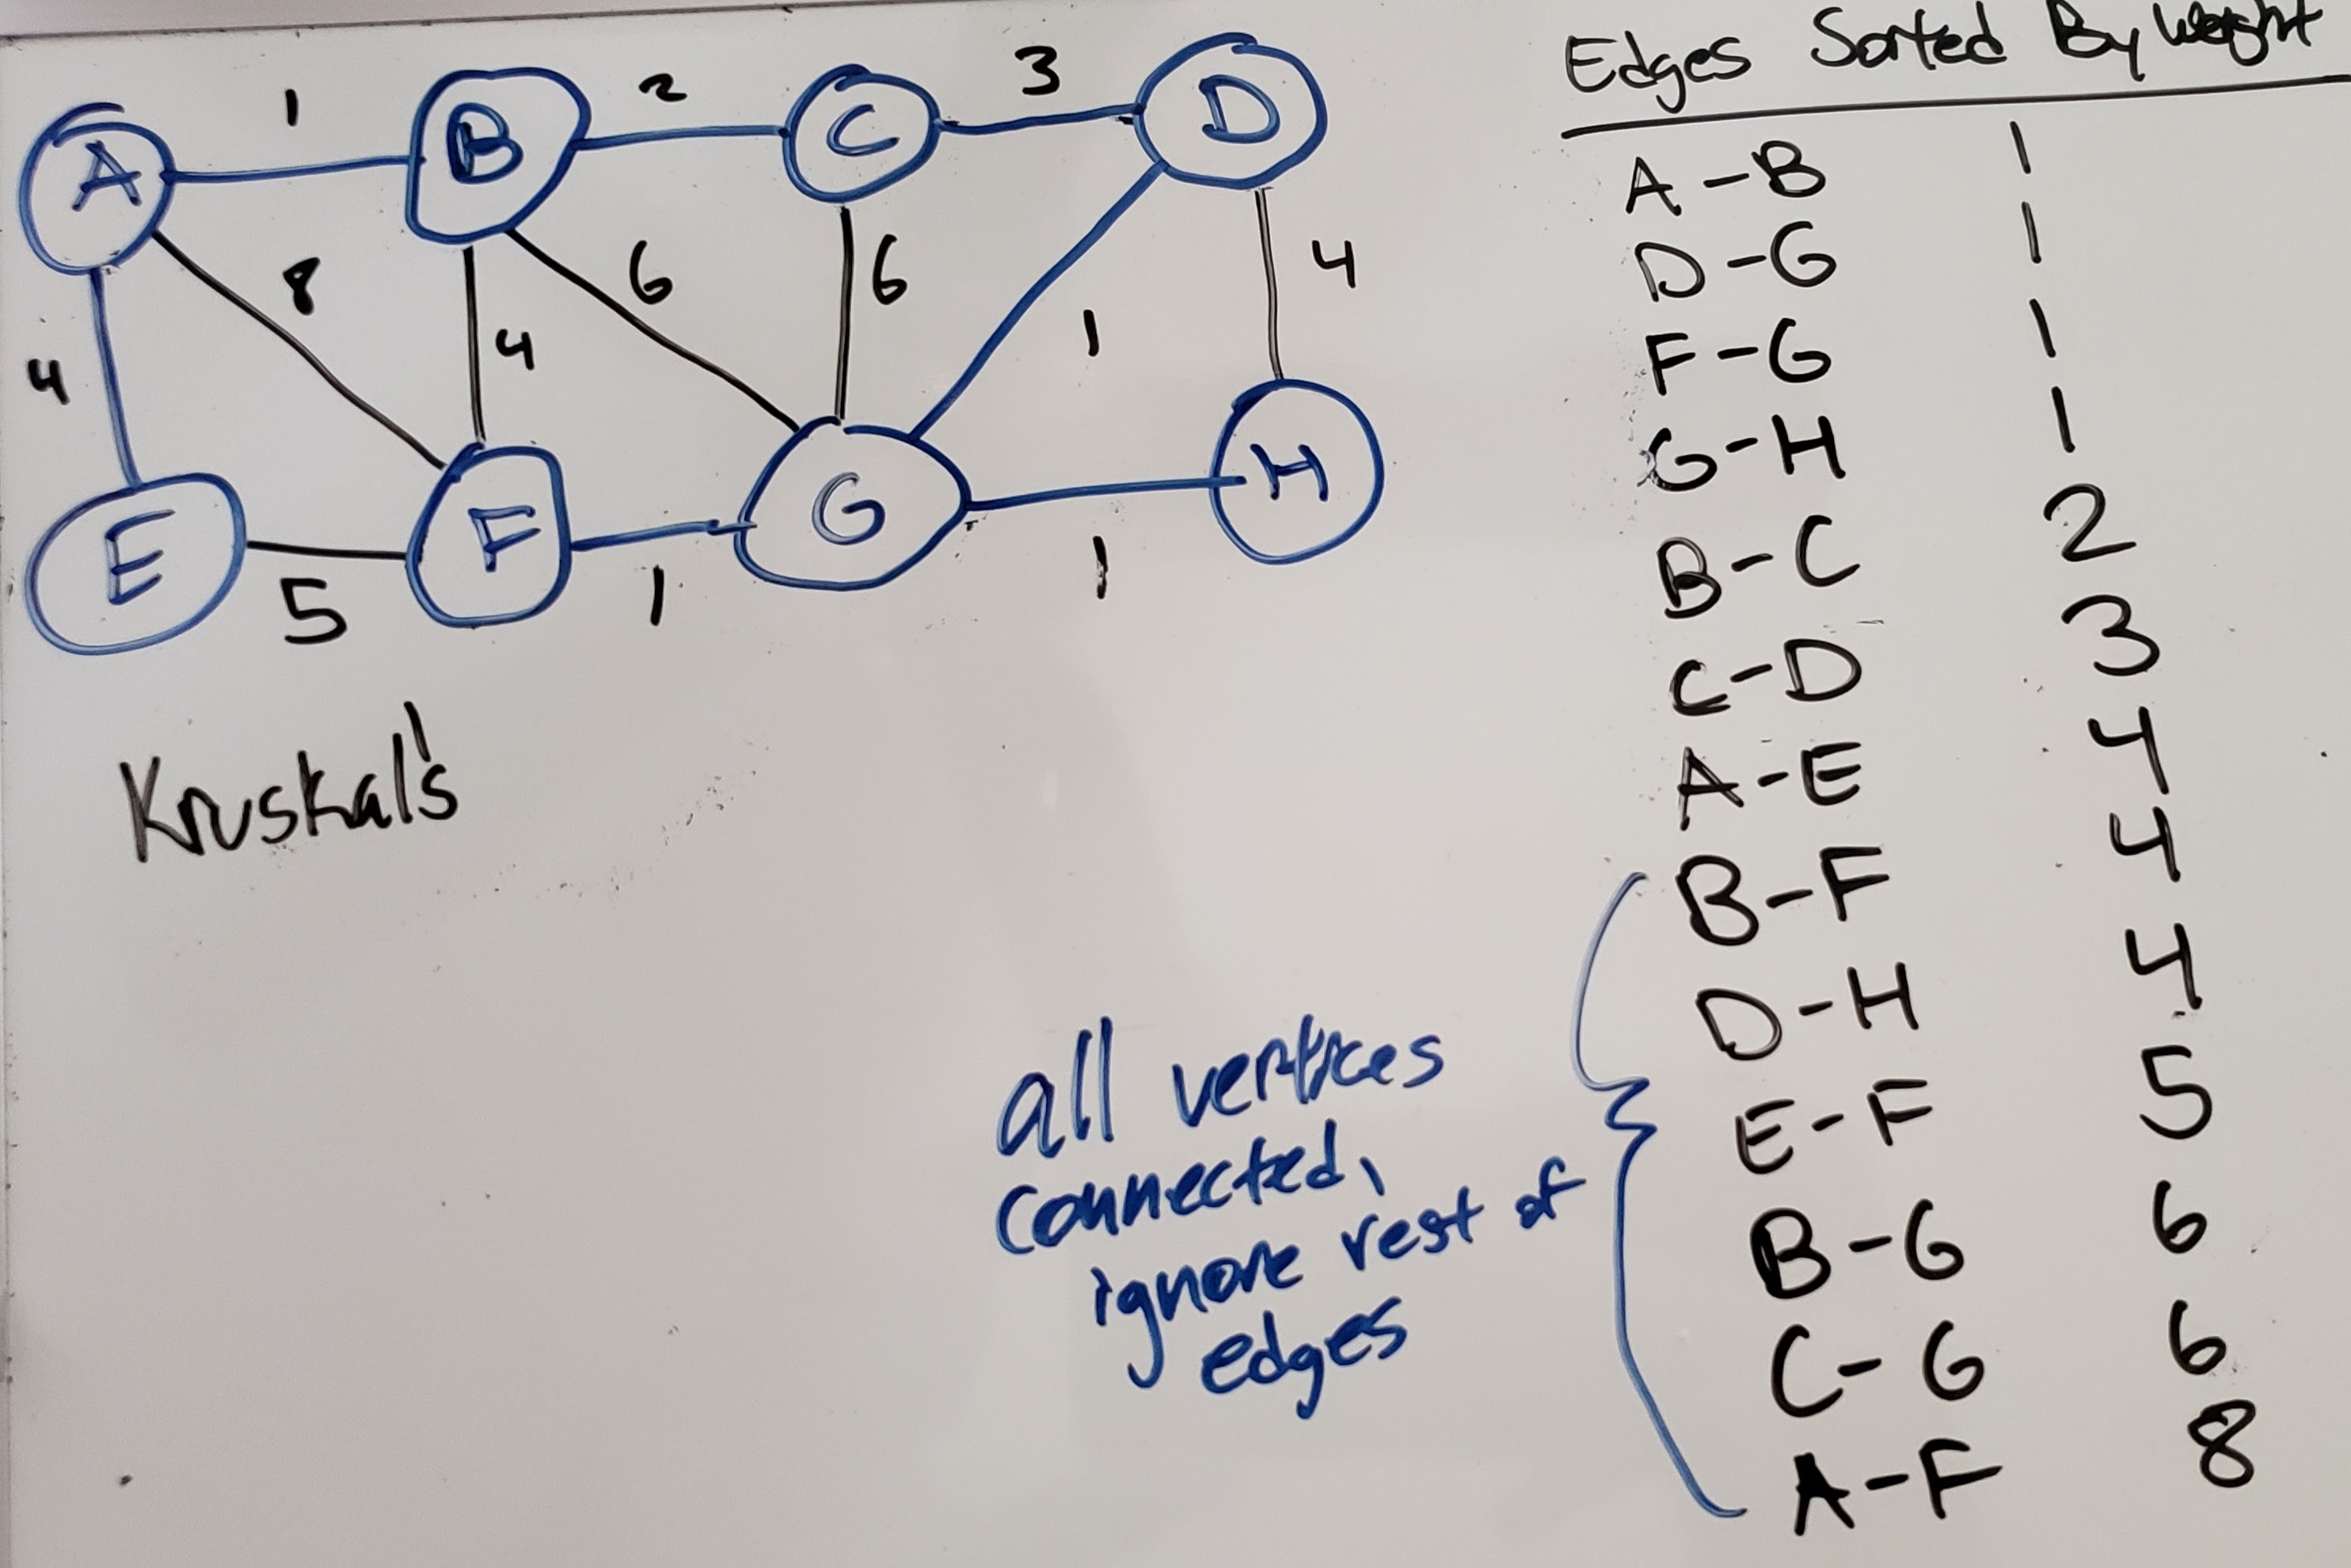 1
2
3
A
B
C
D
8
6
6
4
4
4
1
E
F
G
H
5
1
1
Kruskal's
Edges Sorted By Weight
A-B 1
D-G 1
F-G 1
G-H 1
B-C 2
C-D 3
A-E 4
B-F 4
D-H 4
E-F 5
B-G 6
C-G 6
A-F 8
all vertices
connected,
ignore rest of
edges